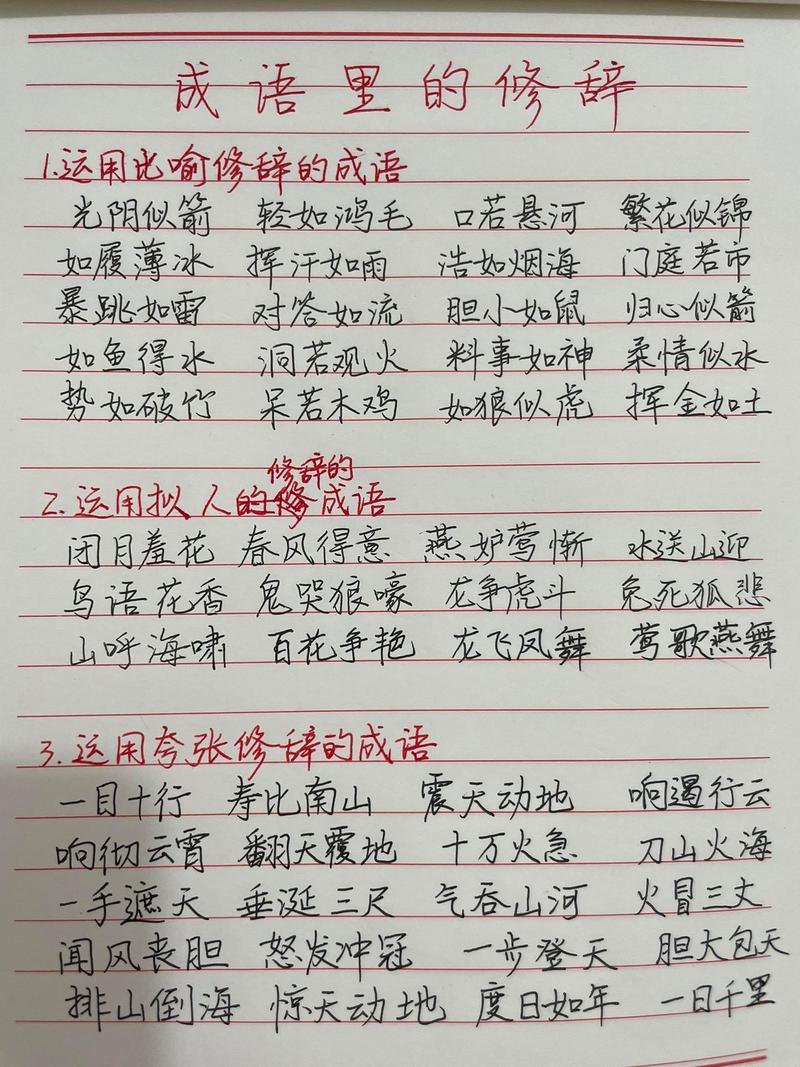 成语里的修辞
1.运用比喻修辞的成语
光阴似箭 轻如鸿毛 口若悬河 繁花似锦
如履薄冰 挥汗如雨 浩如烟海 门庭若市
暴跳如雷 对答如流 胆小如鼠 归心似箭
如鱼得水 洞若观火 料事如神 柔情似水
势如破竹 呆若木鸡 如狼似虎 挥金如土
修辞的
2.运用拟人的修成语
闭月羞花 春风得意 燕妒莺惭 水送山迎
鸟语花香 鬼哭狼嚎 龙争虎斗 兔死狐悲
山呼海啸 百花争艳 龙飞凤舞 莺歌燕舞
3.运用夸张修辞的成语
一目十行 寿比南山 震天动地 响遏行云
响彻云霄 翻天覆地 十万火急 刀山火海
一手遮天 垂涎三尺 气吞山河 火冒三丈
闻风丧胆 怒发冲冠 一步登天 胆大包天
排山倒海 惊天动地 度日如年 一日千里